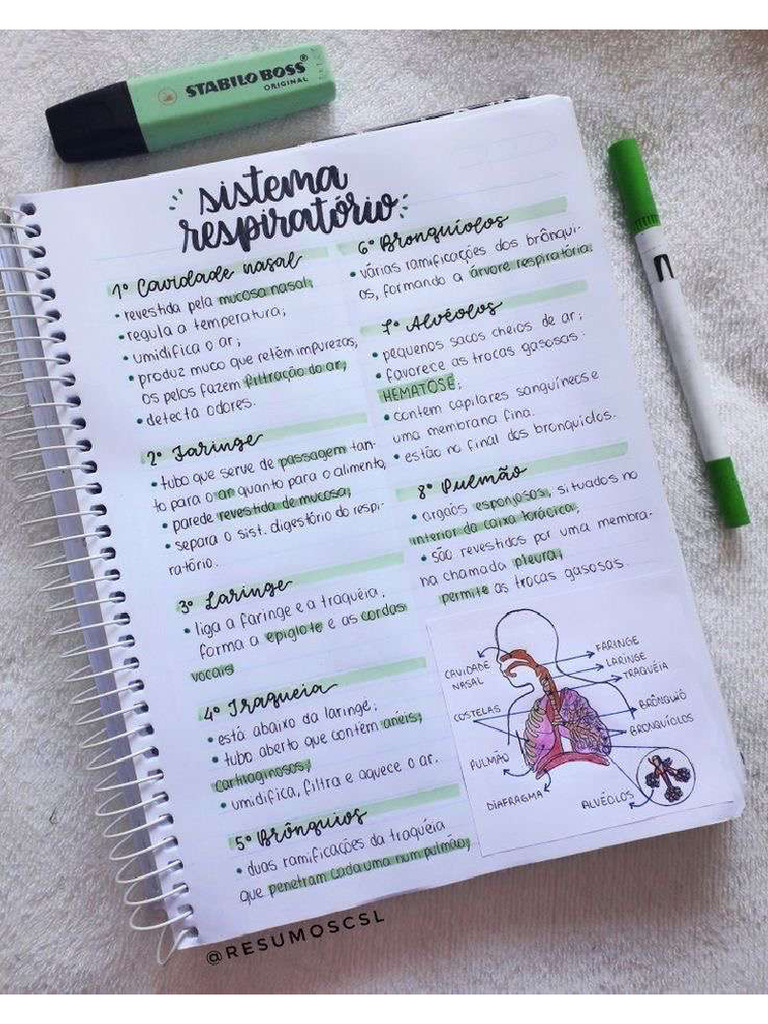 STABILO BOSS®
ORIGINAL
sistema
respiratório
1º Cavidade nasal
• revestida pela mucosa nasal;
• regula a temperatura;
• umidifica o ar;
• produz muco que retêm impurezas,
os pelos fazem filtração do ar;
• detecta odores.
2º Faringe
• tubo que serve de passagem tan-
to para o ar quanto para o alimento;
• parede revestida de mucosa;
• separa o sist. digestório do respi-
ratório.
3º Laringe
• liga a faringe e a traquéia.
forma a epiglote e as cordas
vocais
4º Traqueia
• está abaixo da laringe;
• tubo aberto que contém anéis;
cartilaginosos;
• umidifica, filtra e aquece o ar.
5º Brônquios
• duas ramificações da traquéia
que penetram cada uma num pulmão;
6º Bronquíolos
• várias ramificações dos brônqui-
os, formando a árvore respiratória.
7º Alvéolos
• pequenos sacos cheios de ar;
• favorece as trocas gasosas:
HEMATOSE;
• contém capilares sanguíneos e
uma membrana fina.
• estão no final dos bronquíolos.
8º Pulmão
• orgãos esponjosos, situados no
interior da caixa torácica;
• são revestidos por uma membra-
na chamada pleura;
permite as trocas gasosas.
CAVIDADE
NASAL
FARINGE
LARINGE
TRAQUÉIA
COSTELAS
BRÔNQUIO
BRONQUÍOLOS
PULMÃO
DIAFRAGMA
ALVÉOLOS
@RESUMOSCSL
n